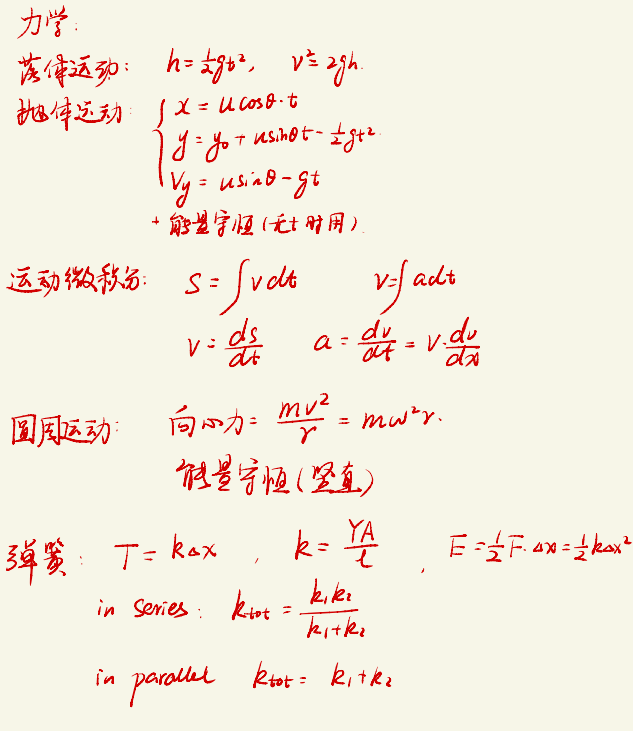 力学:
落体运动: h=½gt², v²=2gh.
抛体运动: { x = u cosθ·t
y = y₀ + usinθt - ½gt².
Vy = usinθ - gt
+ 能量守恒 (无t时用)
运动微积分: S = ∫vdt v=∫adt
v = ds/dt a = dv/dt = v·dv/dx
圆周运动: 向心力 = mv²/r = mω²r.
能量守恒 (竖直)
弹簧: T = kΔx , k = YA/l , E = ½F·Δx = ½kΔx²
in series: k_tot = k₁k₂/(k₁+k₂)
in parallel k_tot = k₁+k₂